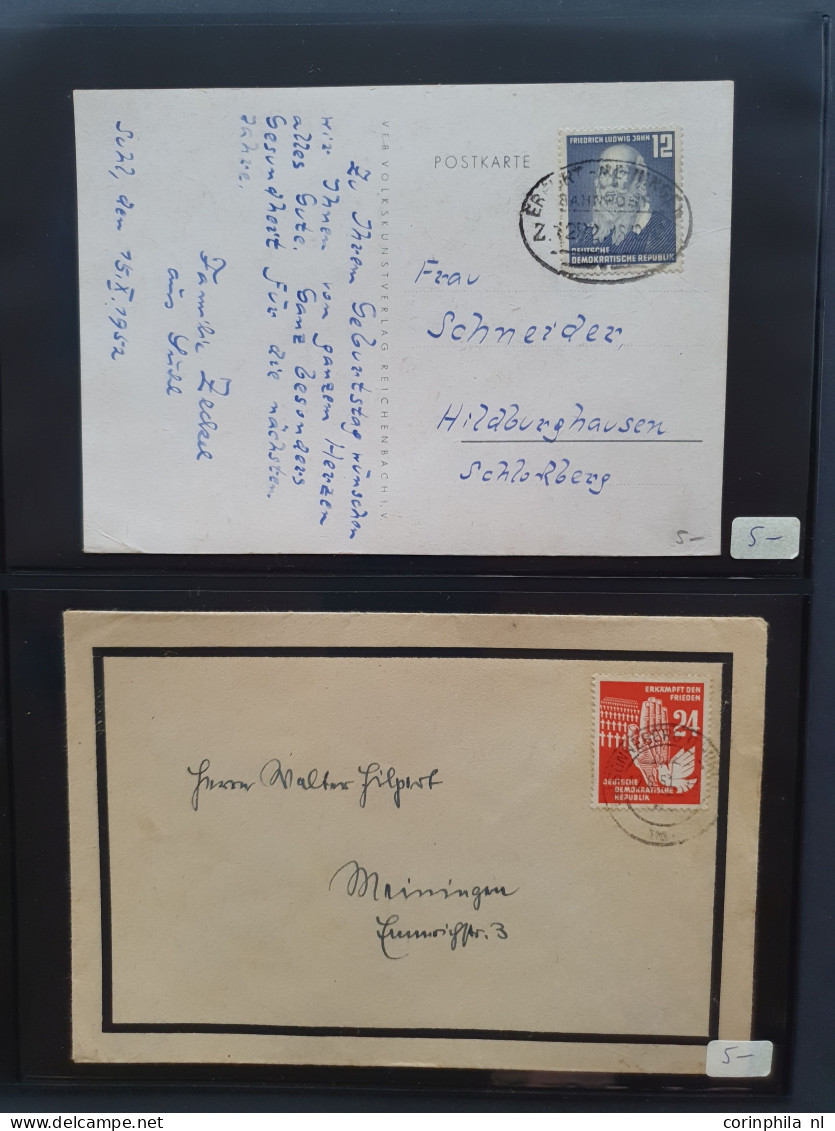 POSTKARTE
FRIEDRICH LUDWIG JAHN 12
DEUTSCHE
DEMOKRATISCHE REPUBLIK
ERFURT - 
BAHNPOST
Z.
Frau
Schneider,
Hildburghausen
Schloßberg
VEB VOLKSKUNSTVERLAG REICHENBACH I. V
Zu Ihrem Geburtstag wünschen
wir Ihnen von ganzem Herzen
alles Gute. Ganz besonders
Gesundheit für die nächsten
Jahre.
Familie
aus Suhl
Suhl, den 15.X.1952
5-
5-
ERKÄMPFT DEN
FRIEDEN
24
DEUTSCHE
DEMOKRATISCHE
REPUBLIK
Herrn Walter Hilpert
Meiningen
Emmrichstr. 3
5-
www.delcampe.net
corinphila nl